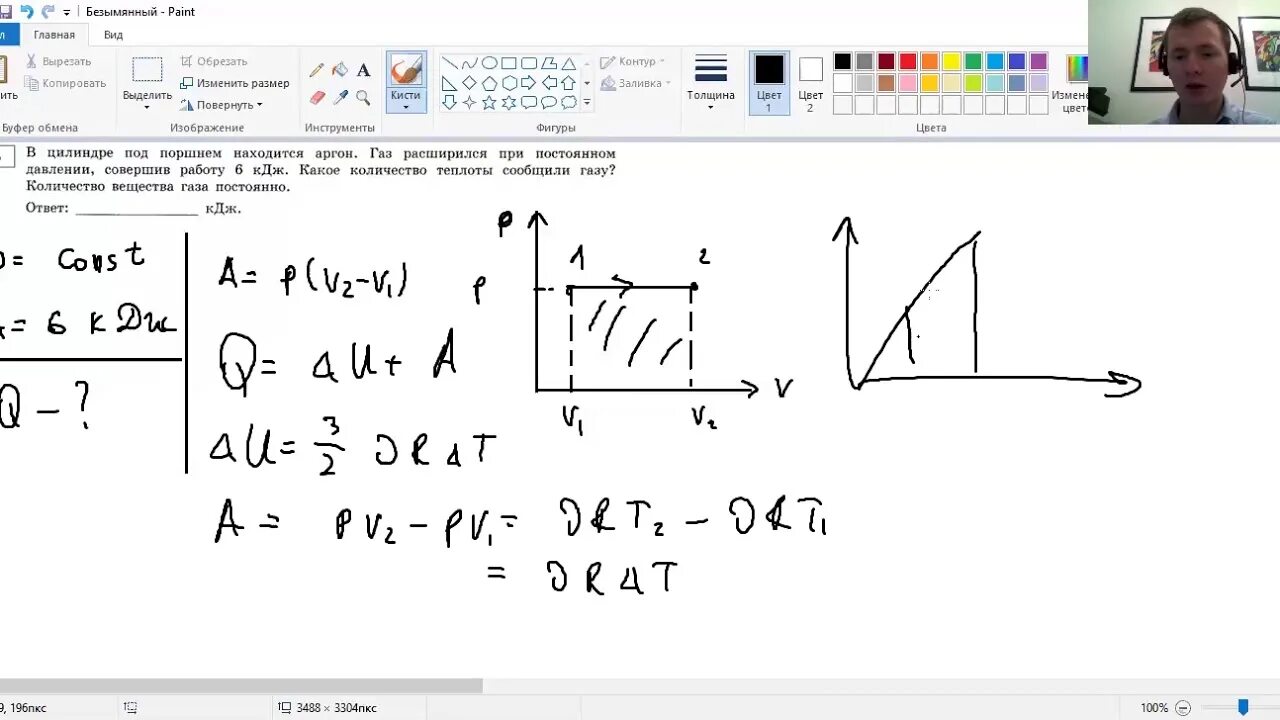 Безымянный - Paint
Главная Вид
Вырезать
Копировать
Буфер обмена
Выделить
Обрезать
Изменить размер
Повернуть
Изображение
A
Инструменты
Кисти
Контур
Заливка
Фигуры
Толщина
Цвет 1
Цвет 2
Цвета
В цилиндре под поршнем находится аргон. Газ расширился при постоянном
давлении, совершив работу 6 кДж. Какое количество теплоты сообщили газу?
Количество вещества газа постоянно.
Ответ: ____________ кДж.
= const
= 6 кДж
Q - ?
A = p(V₂-V₁)
Q = ΔU + A
ΔU = 3/2 νRΔT
A = pV₂ - pV₁ = νRT₂ - νRT₁
= νRΔT
p
1 2
p
V
V₁ V₂
196пкс
3488 × 3304пкс
100%